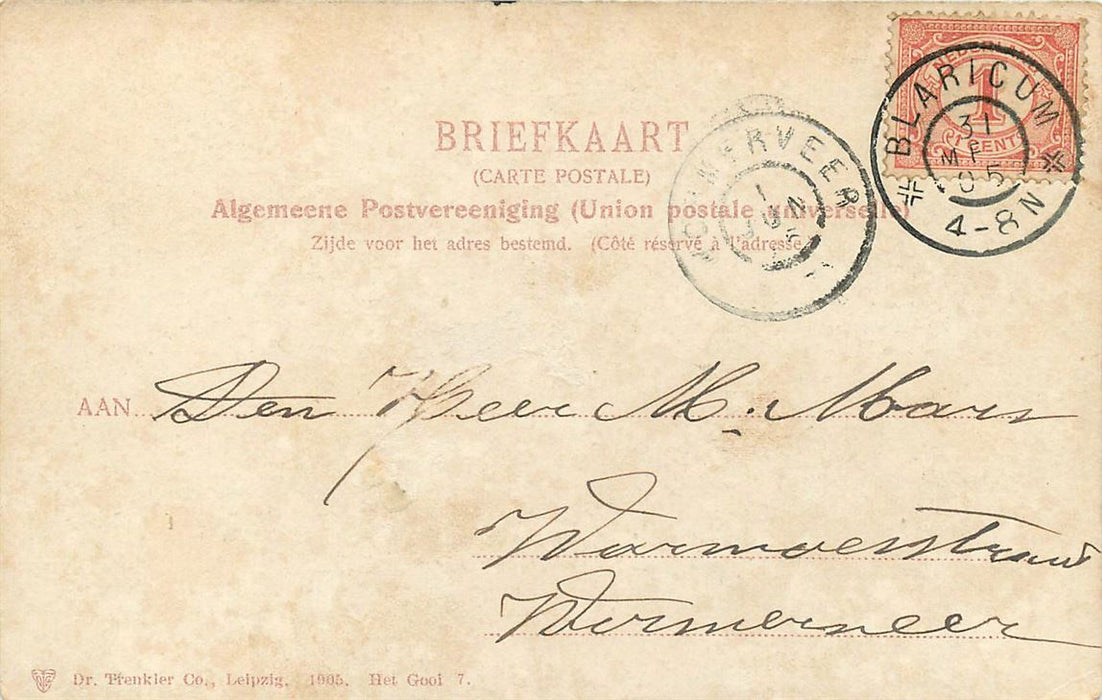 NEDERLAND
1
CENT
BLARICUM
31
ME
05
4-8N
WORMERVEER
1
JUN
BRIEFKAART
(CARTE POSTALE)
Algemeene Postvereeniging (Union postale universelle)
Zijde voor het adres bestemd. (Côté réservé à l'adresse
AAN Den Heer M. Mars
Warmoesstraat
Wormerveer
Dr. Trenkler Co., Leipzig. 1905. Het Gooi 7.